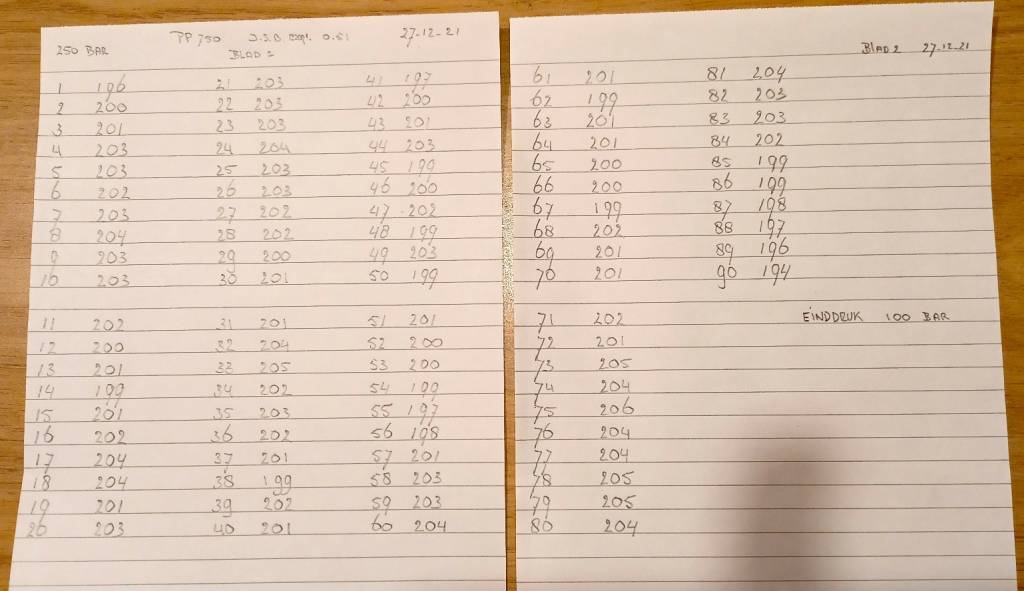 250 BAR PP 750 J.S.B. 0.51 27-12-21
BLAD 1
1 196 21 203 41 197
2 200 22 203 42 200
3 201 23 203 43 201
4 203 24 204 44 203
5 203 25 203 45 199
6 202 26 203 46 200
7 203 27 202 47 202
8 204 28 202 48 199
9 203 29 200 49 203
10 203 30 201 50 199
11 202 31 201 51 201
12 200 32 204 52 200
13 201 33 205 53 200
14 199 34 202 54 199
15 201 35 203 55 197
16 202 36 202 56 198
17 204 37 201 57 201
18 204 38 199 58 203
19 201 39 202 59 203
20 203 40 201 60 204
BLAD 2 27-12-21
61 201 81 204
62 199 82 203
63 201 83 203
64 201 84 202
65 200 85 199
66 200 86 199
67 199 87 198
68 202 88 197
69 201 89 196
70 201 90 194
71 202 EINDDRUK 100 BAR
72 201
73 205
74 204
75 206
76 204
77 204
78 205
79 205
80 204